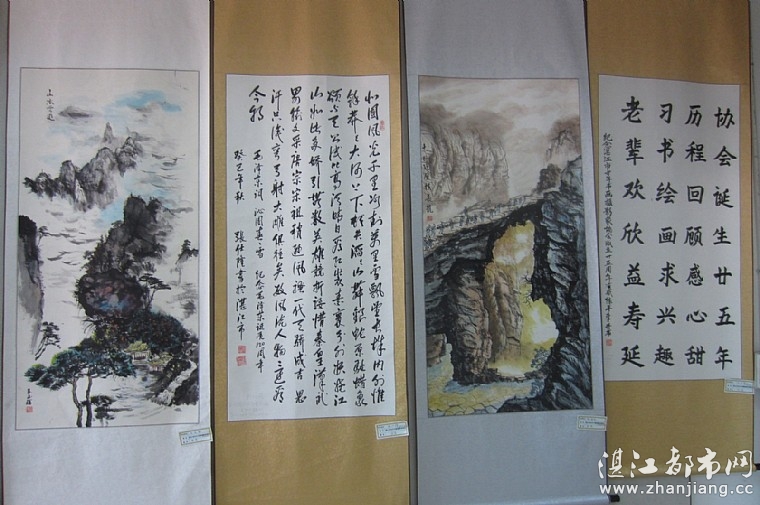 山水雲龍
北国风光千里冰封万里雪飘望长城内外惟
馀莽莽大河上下顿失滔滔山舞银蛇原驰蜡象
欲与天公试比高须晴日看红装素裹分外妖娆江
山如此多娇引无数英雄竞折腰惜秦皇汉武
略输文采唐宗宋祖稍逊风骚一代天骄成吉思
汗只识弯弓射大雕俱往矣数风流人物还看
今朝
毛泽东词 沁园春 雪 纪念毛泽东诞辰120周年
癸巳年秋 張仕隆書於湛江市
协会诞生廿五年
历程回顾感心甜
习书绘画求兴趣
老辈欢欣益寿延
湛江都市网
www.zhanjiang.cc